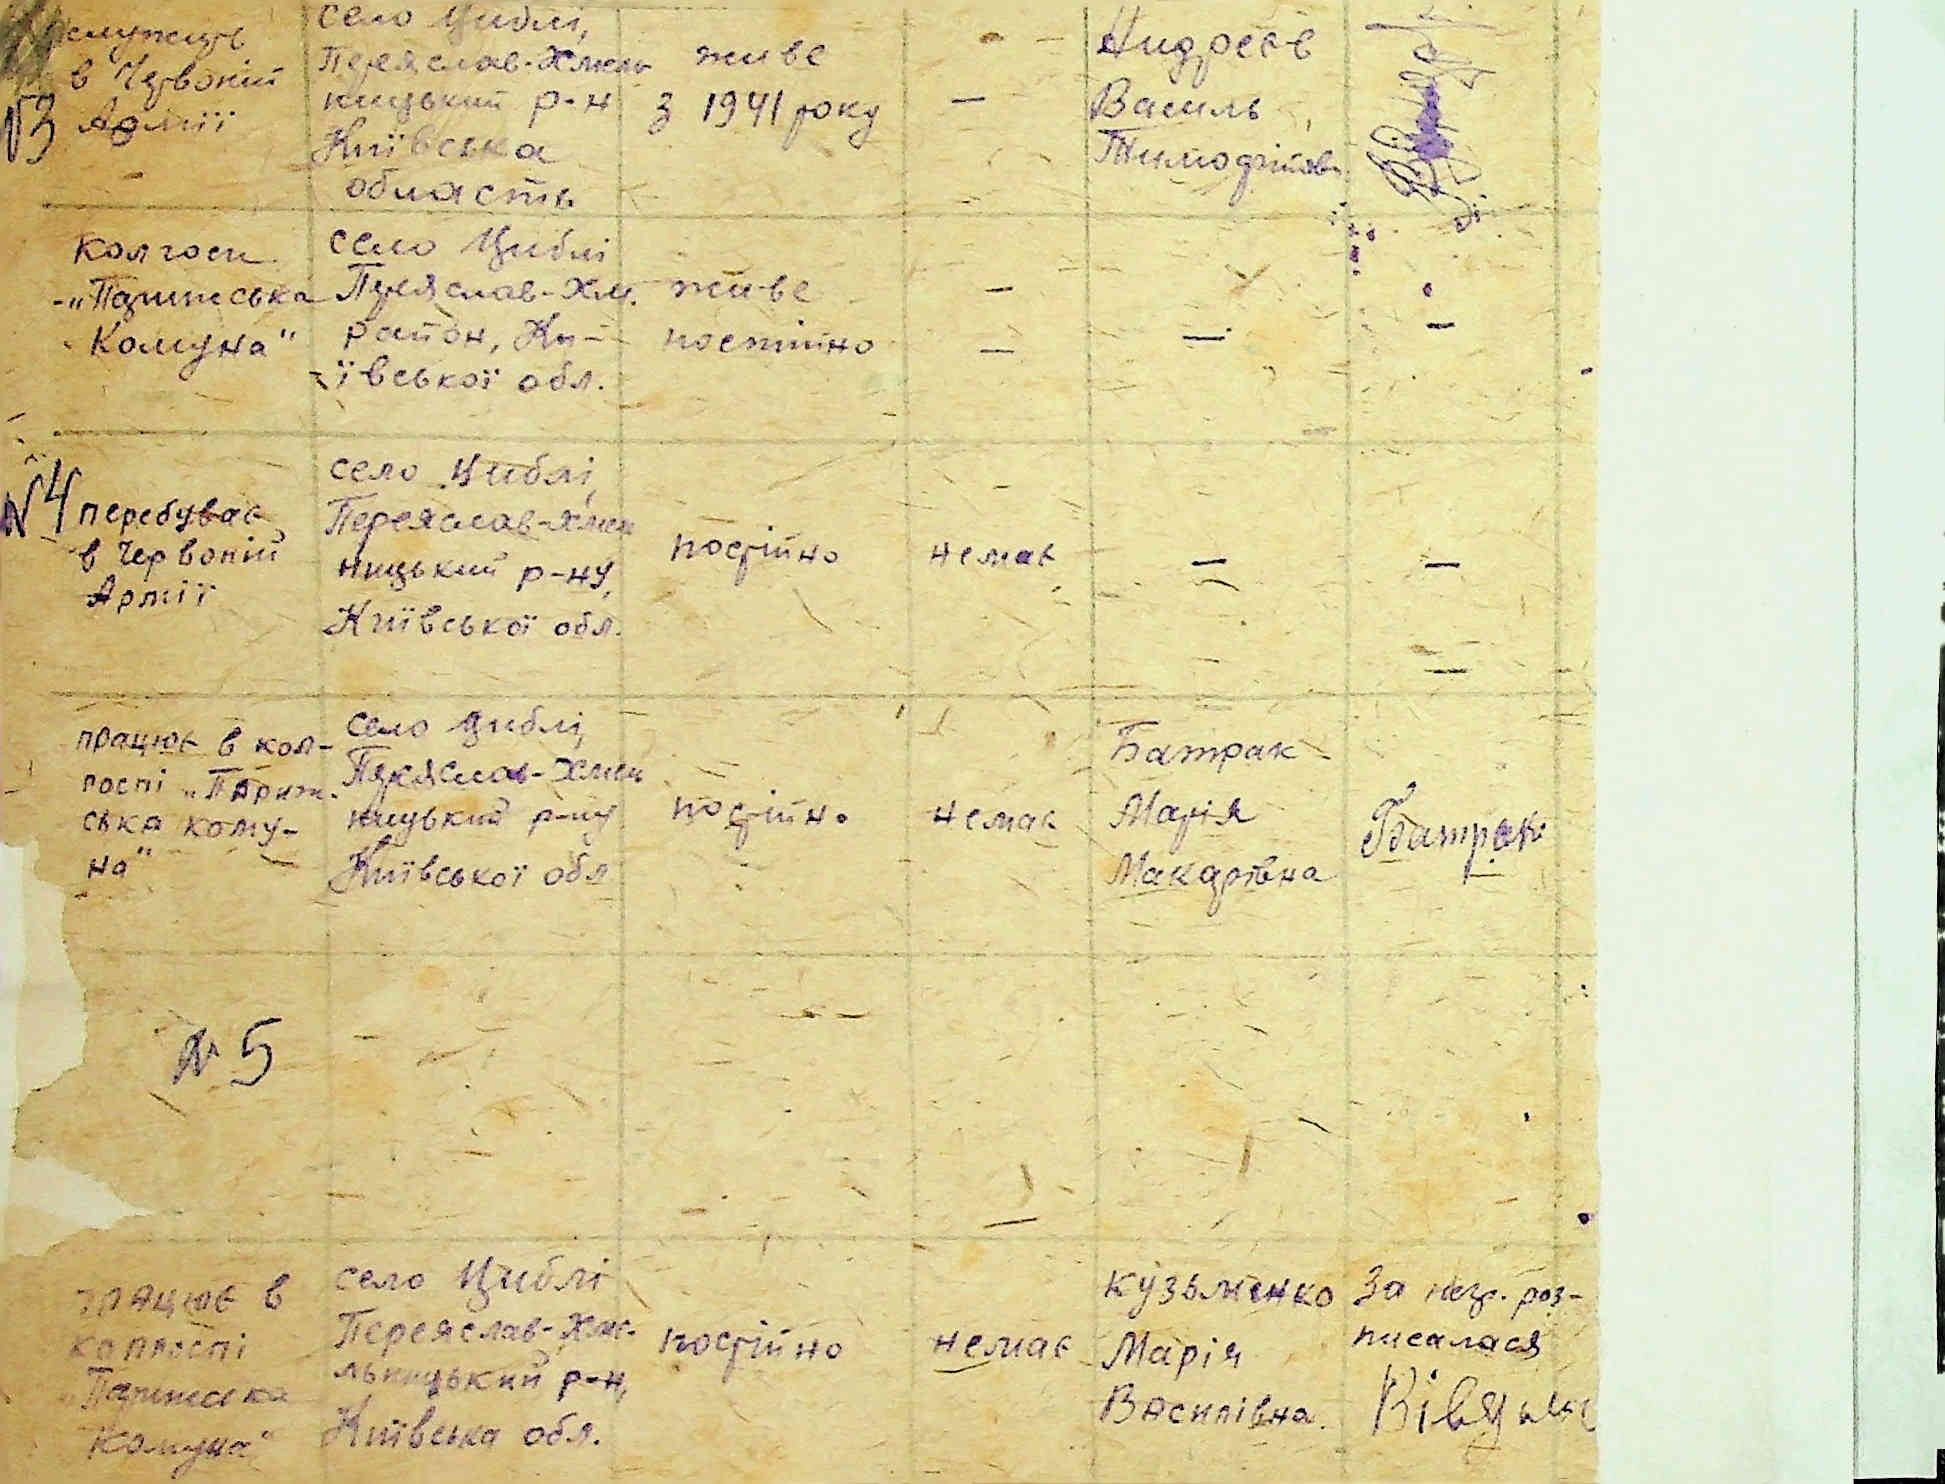 служить
в Червоній
№3 Армії
село Циблі,
Переяслав-Хмель
ницький р-н
Київська
область
живе
з 1941 року
—
Андреєв
Василь
Тимофійов
колгосп
"Паризька
Комуна"
село Циблі
Переяслав-Хм.
район, Ки-
ївської обл.
живе
постійно
—
—
—
—
№4 перебуває
в Червоній
Армії
село Циблі,
Переяслав-Хмел
ницький р-ну,
Київської обл.
постійно
немає
—
—
працює в кол-
госпі „Париж-
ська кому-
на"
село Циблі,
Переяслав-Хмел
ницький р-ну
Київської обл
постійно
немає
Батрак
Марія
Макарівна
Батрак
№ 5
працює в
колгоспі
„Парижська
Комуна"
село Циблі
Переяслав-Хме-
льницький р-н,
Київська обл.
постійно
немає
Кузьменко
Марія
Василівна.
За негр. роз-
писалася